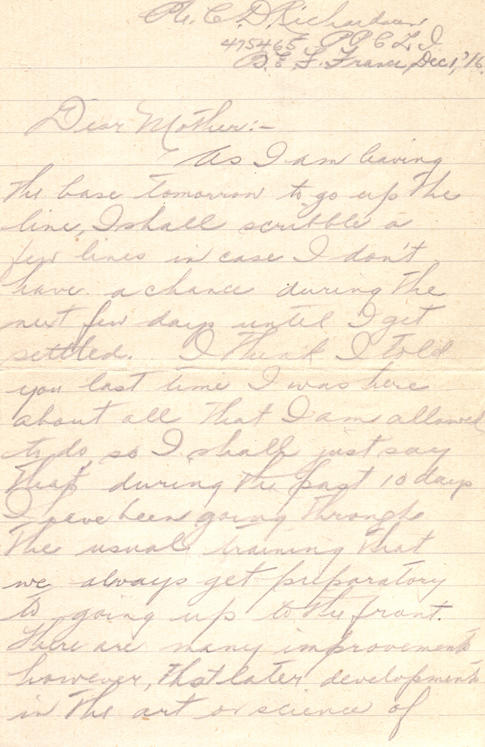 Pte. C. D. Richardson
475465 P P C L I
B. E. F. France, Dec 1, '16.
Dear Mother:-
As I am leaving
the base tomorrow to go up the
line, I shall scribble a
few lines in case I don't
have a chance during the
next few days until I get
settled. I think I told
you last time I was here
about all that I am allowed
to do so I shall just say
that during the past 10 days
I have been going through
the usual training that
we always get preparatory
to going up to the front.
There are many improvements
however, that later developments
in the art or science of